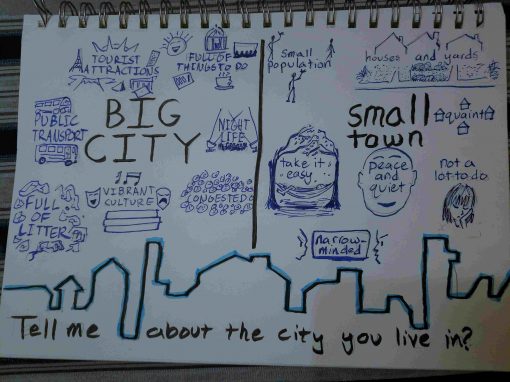 TOURIST
ATTRACTIONS
FULL OF
THINGS TO DO
PUBLIC
TRANSPORT
BIG
CITY
NIGHT
LIFE
FULL
OF
LITTER
VIBRANT
CULTURE
CONGESTED
small
population
houses and yards
small
town
quaint
take it
easy
peace
and
quiet
not a
lot to do
narrow-
minded
Tell me about the city you live in?